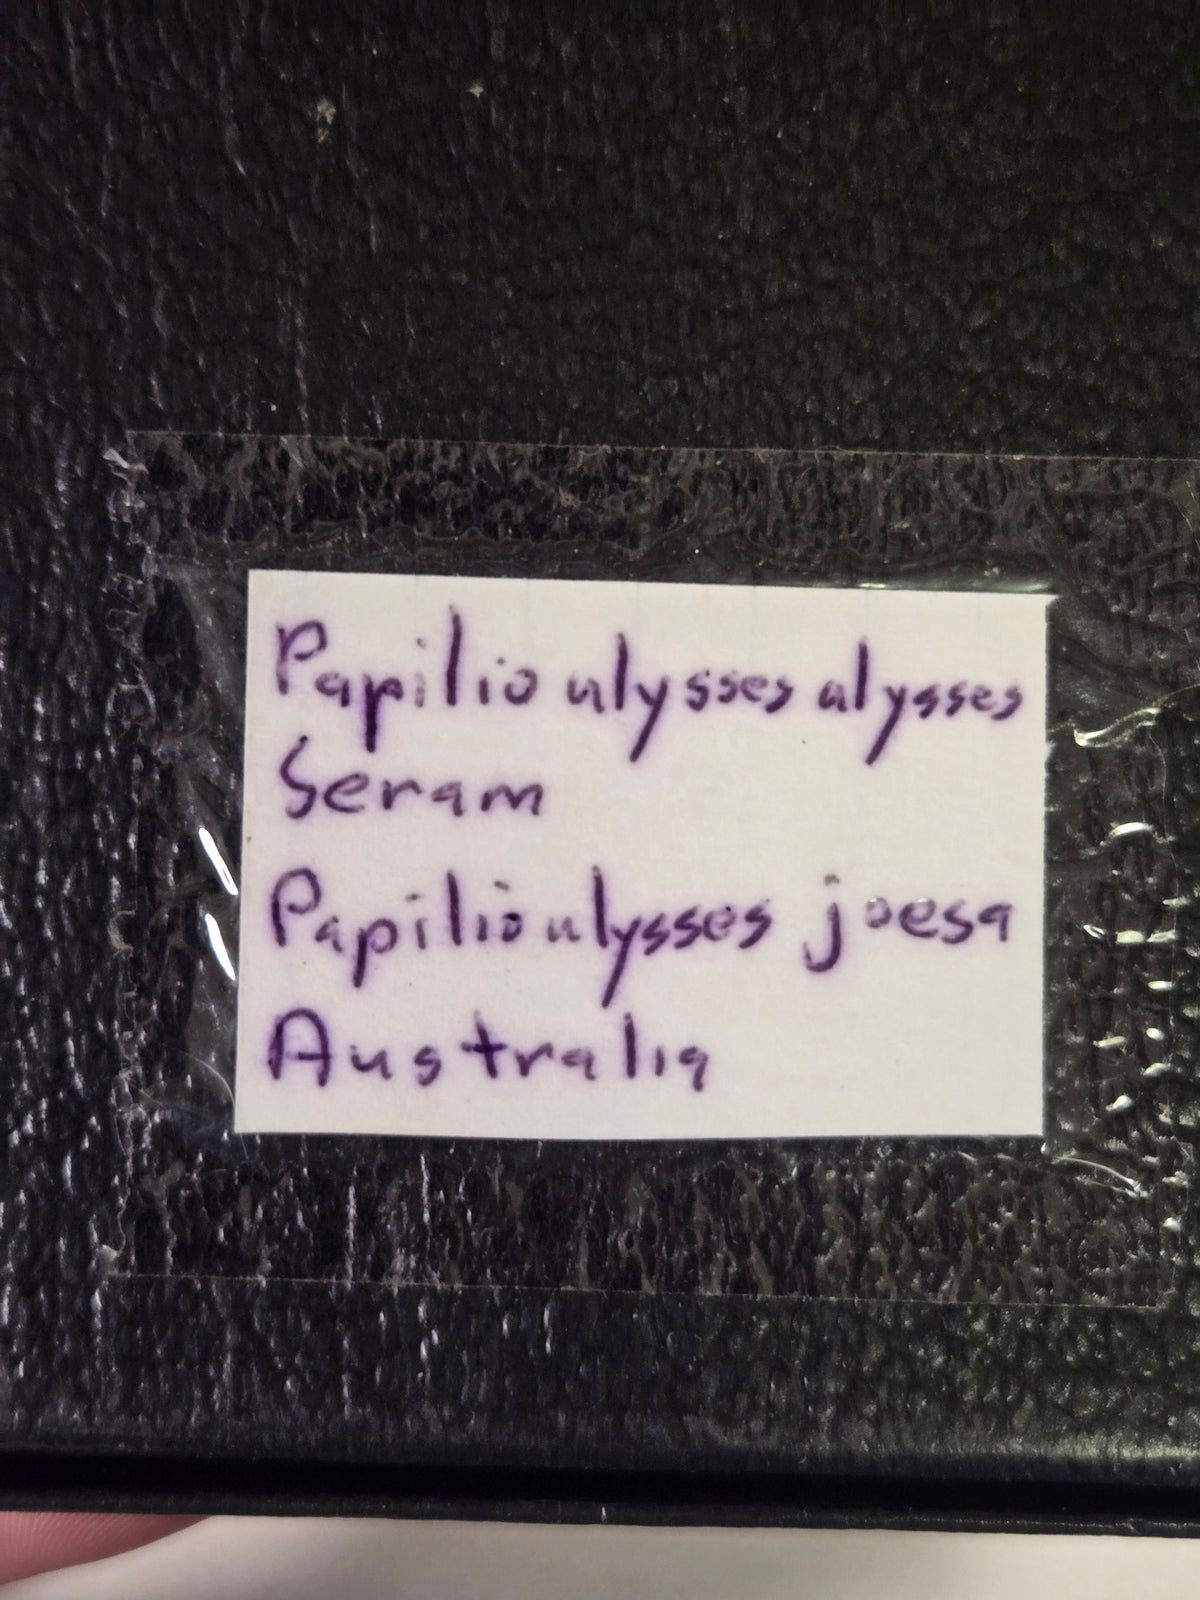 Papilio ulysses ulysses
Seram
Papilio ulysses joesa
Australia